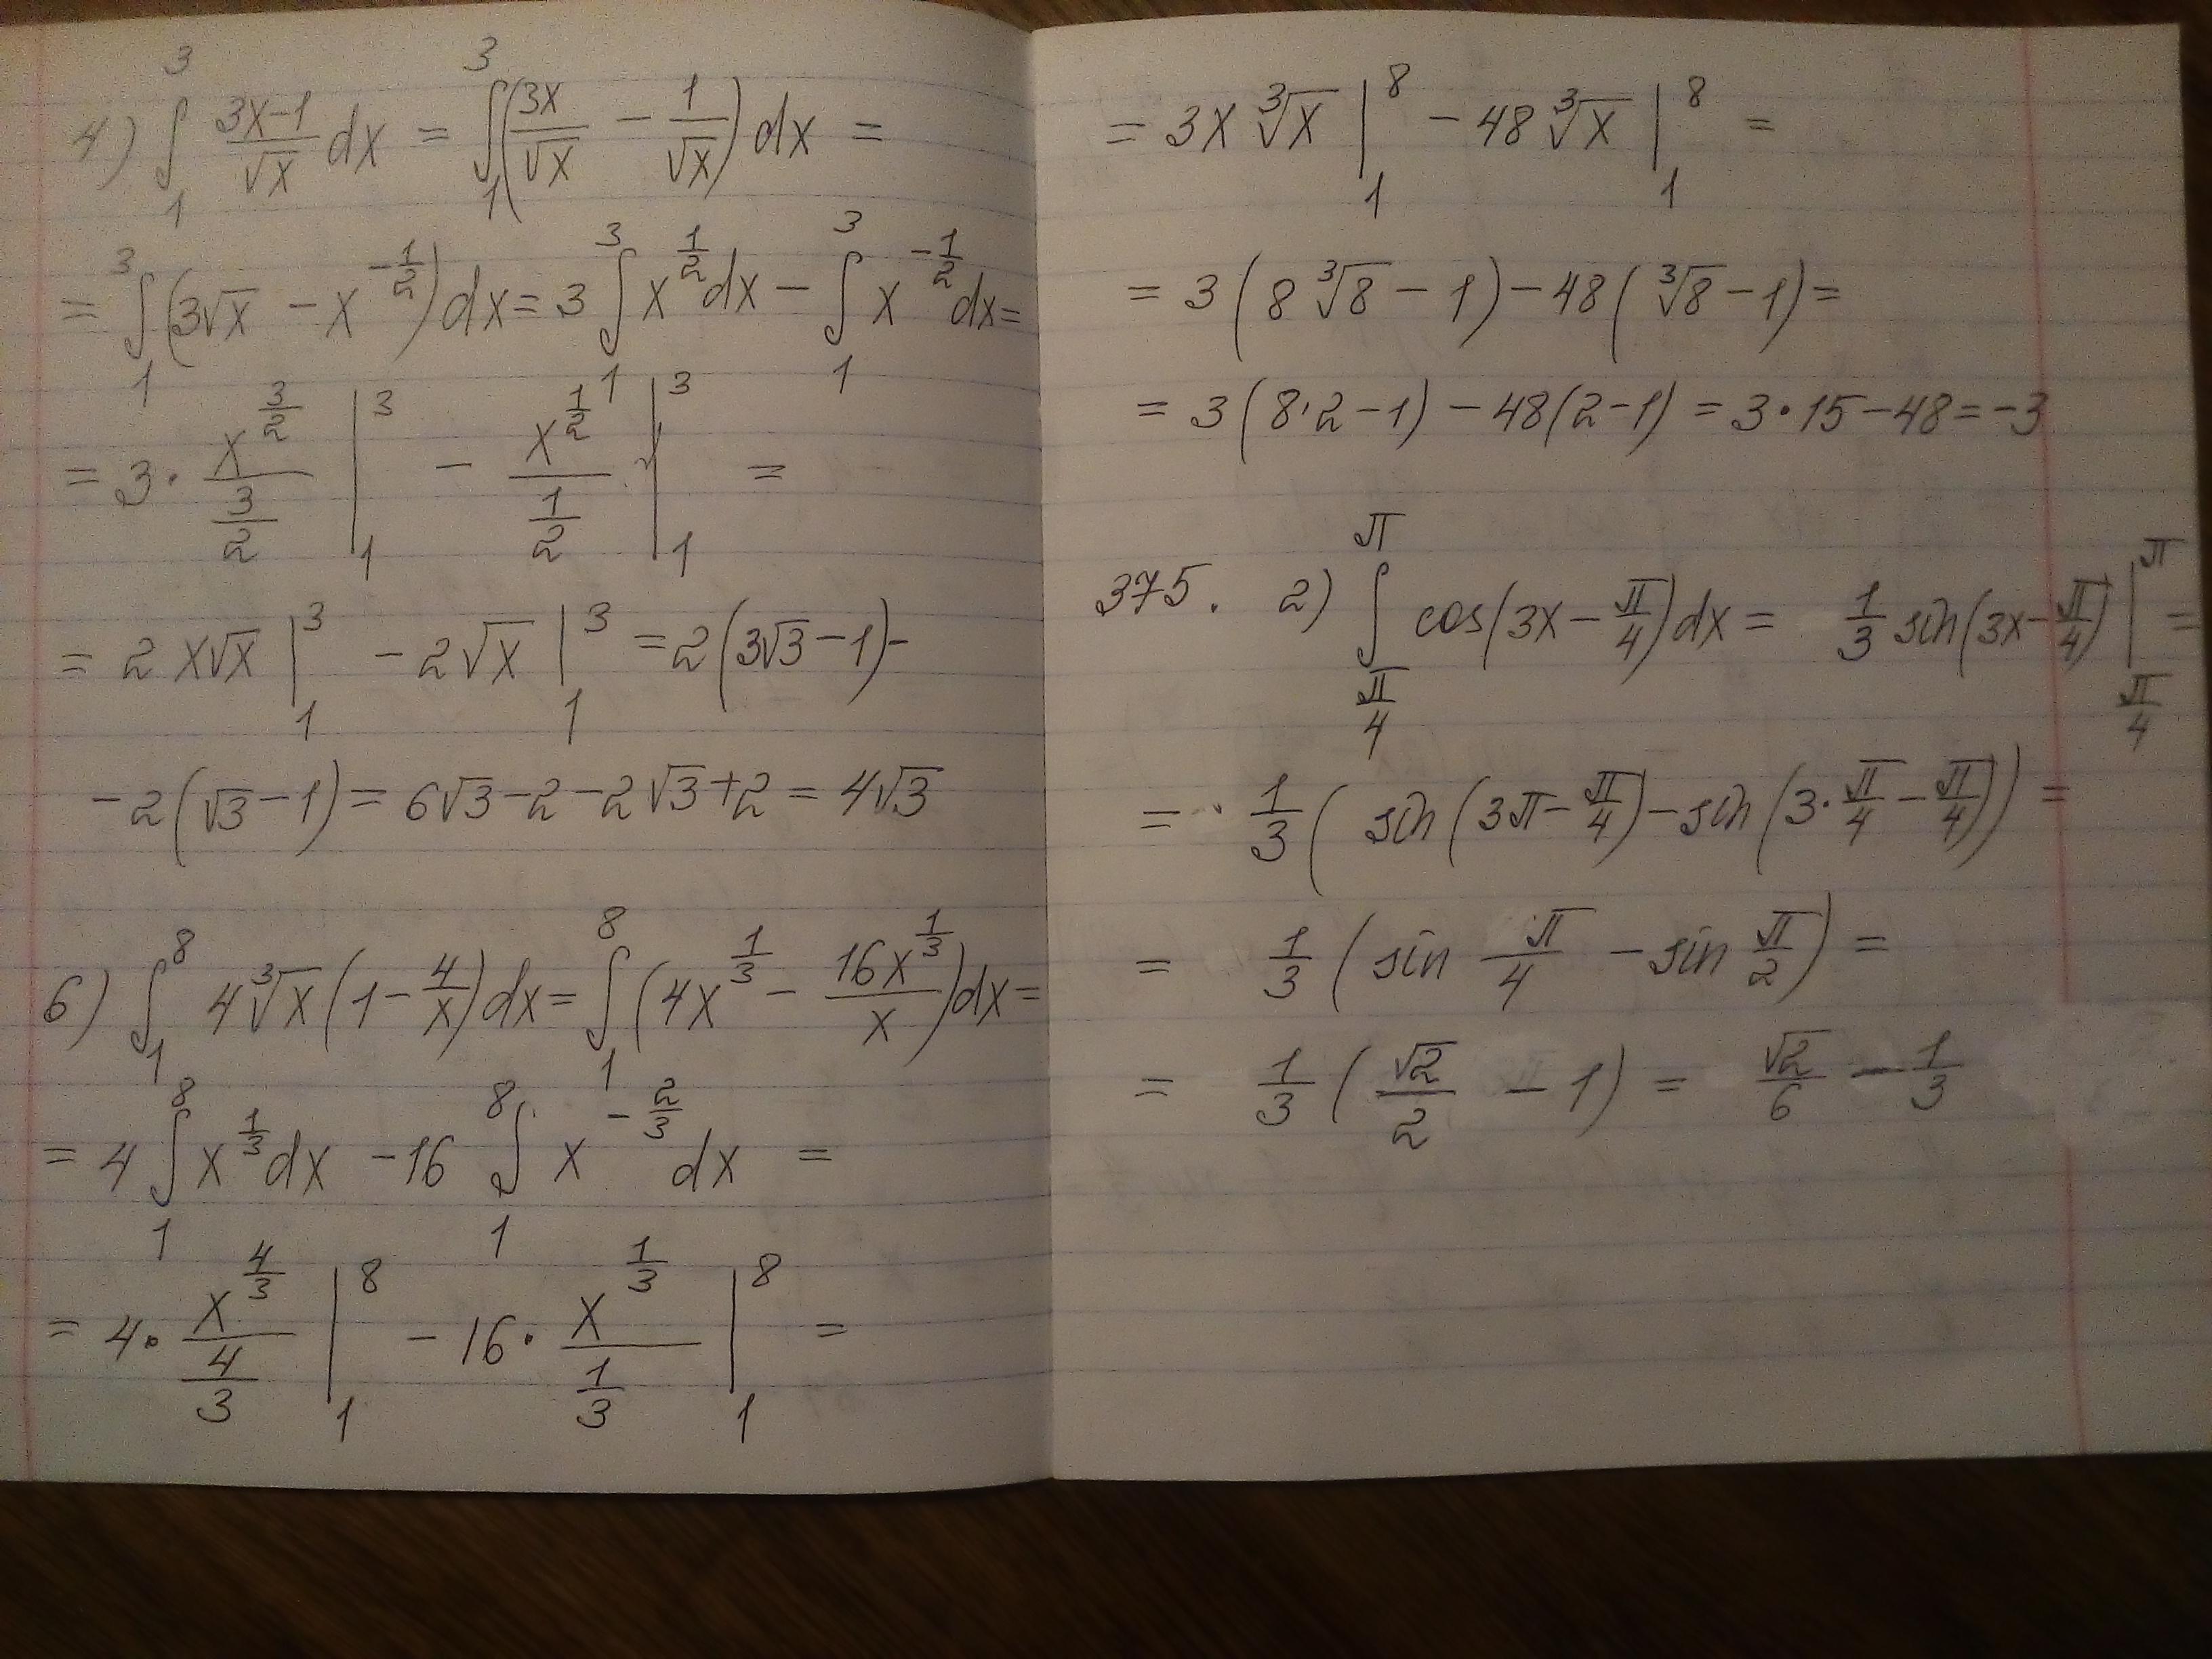 4) ∫₁³ (3x-1)/√x dx = ∫₁³ (3x/√x - 1/√x) dx =
= ∫₁³ (3√x - x^(-1/2)) dx = 3 ∫₁³ x^(1/2) dx - ∫₁³ x^(-1/2) dx =
= 3 · x^(3/2)/(3/2) |₁³ - x^(1/2)/(1/2) |₁³ =
= 2 x√x |₁³ - 2√x |₁³ = 2(3√3 - 1) -
- 2(√3 - 1) = 6√3 - 2 - 2√3 + 2 = 4√3
6) ∫₁⁸ 4∛x (1 - 4/x) dx = ∫₁⁸ (4x^(1/3) - 16x^(1/3)/x) dx =
= 4 ∫₁⁸ x^(1/3) dx - 16 ∫₁⁸ x^(-2/3) dx =
= 4 · x^(4/3)/(4/3) |₁⁸ - 16 · x^(1/3)/(1/3) |₁⁸ =
= 3x ∛x |₁⁸ - 48 ∛x |₁⁸ =
= 3(8 ∛8 - 1) - 48(∛8 - 1) =
= 3(8·2 - 1) - 48(2 - 1) = 3·15 - 48 = -3
375. 2) ∫_(π/4)^π cos(3x - π/4) dx = 1/3 sin(3x - π/4) |_(π/4)^π =
= 1/3 ( sin(3π - π/4) - sin(3·π/4 - π/4)) =
= 1/3 ( sin π/4 - sin π/2 ) =
= 1/3 ( √2/2 - 1) = √2/6 - 1/3